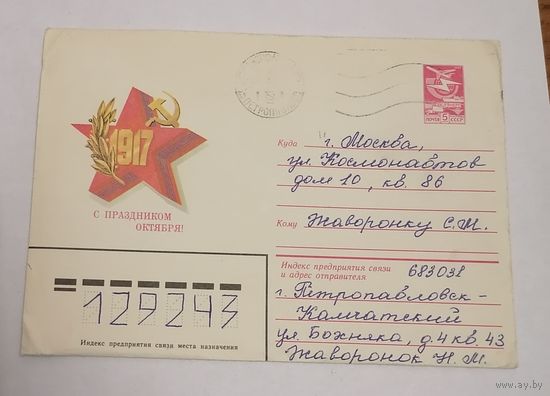 1917
С ПРАЗДНИКОМ
ОКТЯБРЯ!
ПОЧТА 5 СССР
Куда г. Москва,
ул. Космонавтов
дом 10, кв. 86
Кому Жаворонку С.М.
Индекс предприятия связи
и адрес отправителя 683031
г. Петропавловск-
Камчатский
ул. Бохняка, д.4 кв. 43
Жаворонок Н.М.
129243
Индекс предприятия связи места назначения
https://www.ay.by